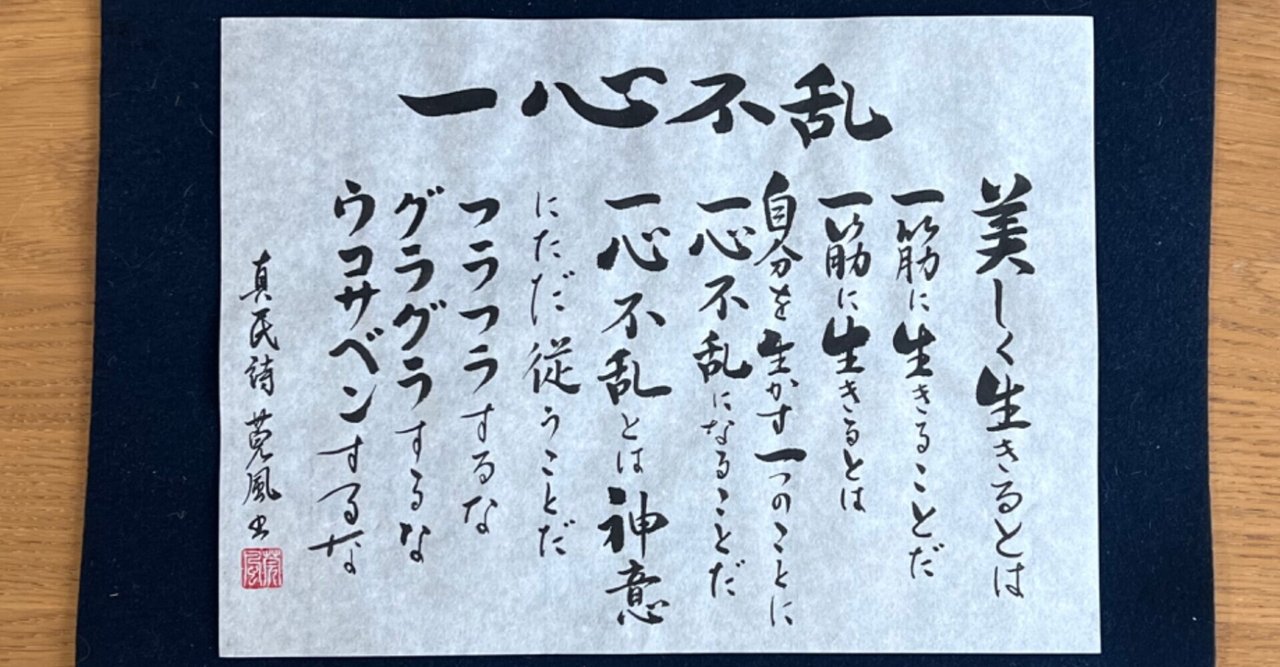 一心不乱
美しく生きるとは
一筋に生きることだ
一筋に生きるとは
自分を生かす一つのことに
一心不乱になることだ
一心不乱とは神意
にただ従うことだ
フラフラするな
グラグラするな
ウコサベンするな
真民詩 莵風書